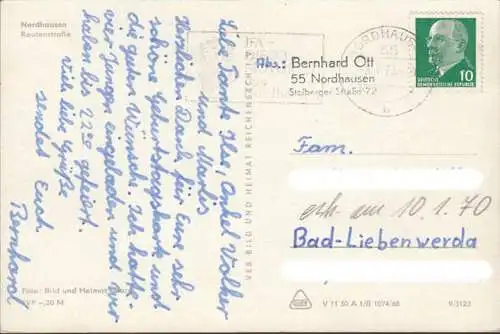 Nordhausen
Rautenstraße
Liebe Tante Ilse, Onkel Volker
und Marlis
Herzlichen Dank für Eure sehr
schöne Geburtstagskarte und
die guten Wünsche. Ich hatte
vier Jungen eingeladen und wir
haben bis 22⁰⁰ gefeiert.
Viele liebe Grüße
sendet Euch
Bernhard
Foto: Bild und Heimat
EVP –,20 M
VEB BILD UND HEIMAT REICHENBACH I. V.
NORDHAUSEN
Abs.: Bernhard Ott
55 Nordhausen
Stolberger Straße 72
DEUTSCHE
DEMOKRATISCHE REPUBLIK
10
Fam.
erh. am 10.1.70
Bad-Liebenwerda
V 11 50 A 1/B 1074/68
9/3123